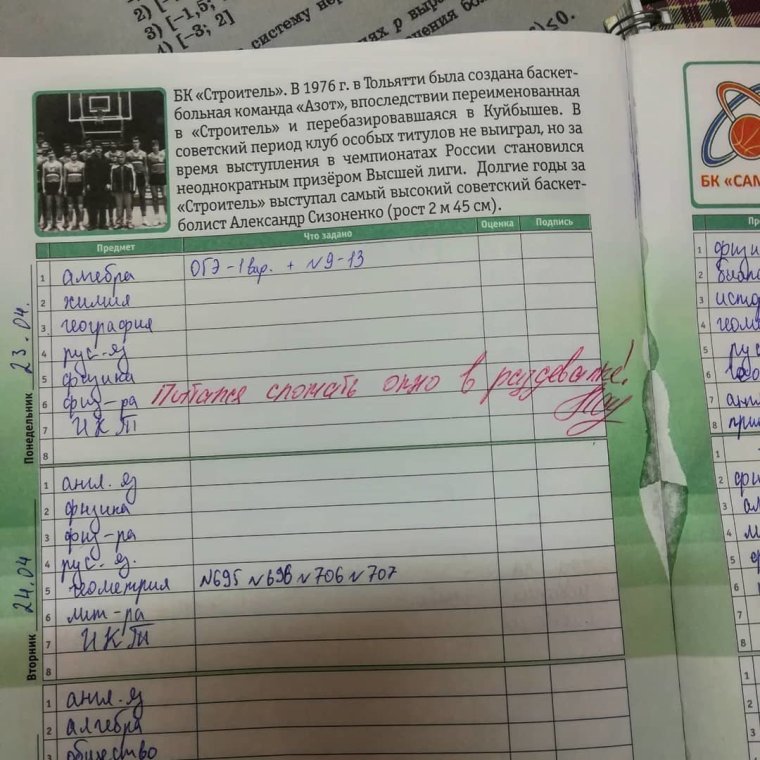 2) [-
3) [-1,5;
4) [-3; 2]
систему нер
БК «Строитель». В 1976 г. в Тольятти была создана баскет-
больная команда «Азот», впоследствии переименованная
в «Строитель» и перебазировавшаяся в Куйбышев. В
советский период клуб особых титулов не выиграл, но за
время выступления в чемпионатах России становился
неоднократным призёром Высшей лиги. Долгие годы за
«Строитель» выступал самый высокий советский баскет-
болист Александр Сизоненко (рост 2 м 45 см).
Предмет Что задано Оценка Подпись
Понедельник 23.04.
1 алгебра ОГЭ-1вар. + №9-13
2 химия
3 география
4 рус. яз
5 физика
6 физ-ра Пытался сломать окно в раздевалке!
7 ИКТ
8
Вторник 24.04
1 англ. яз
2 физика
3 физ-ра
4 рус. яз.
5 геометрия №695 №696 №706 №707
6 лит-ра
7 ИКТ
8
1 англ. яз
2 алгебра
3 общество
БК «САМ
1 физи
2 биол
3 исто
4 геом
5 рус
6
7 анг
8
1
2 физ
3 ал
4
5
6
7
8
1
2
3